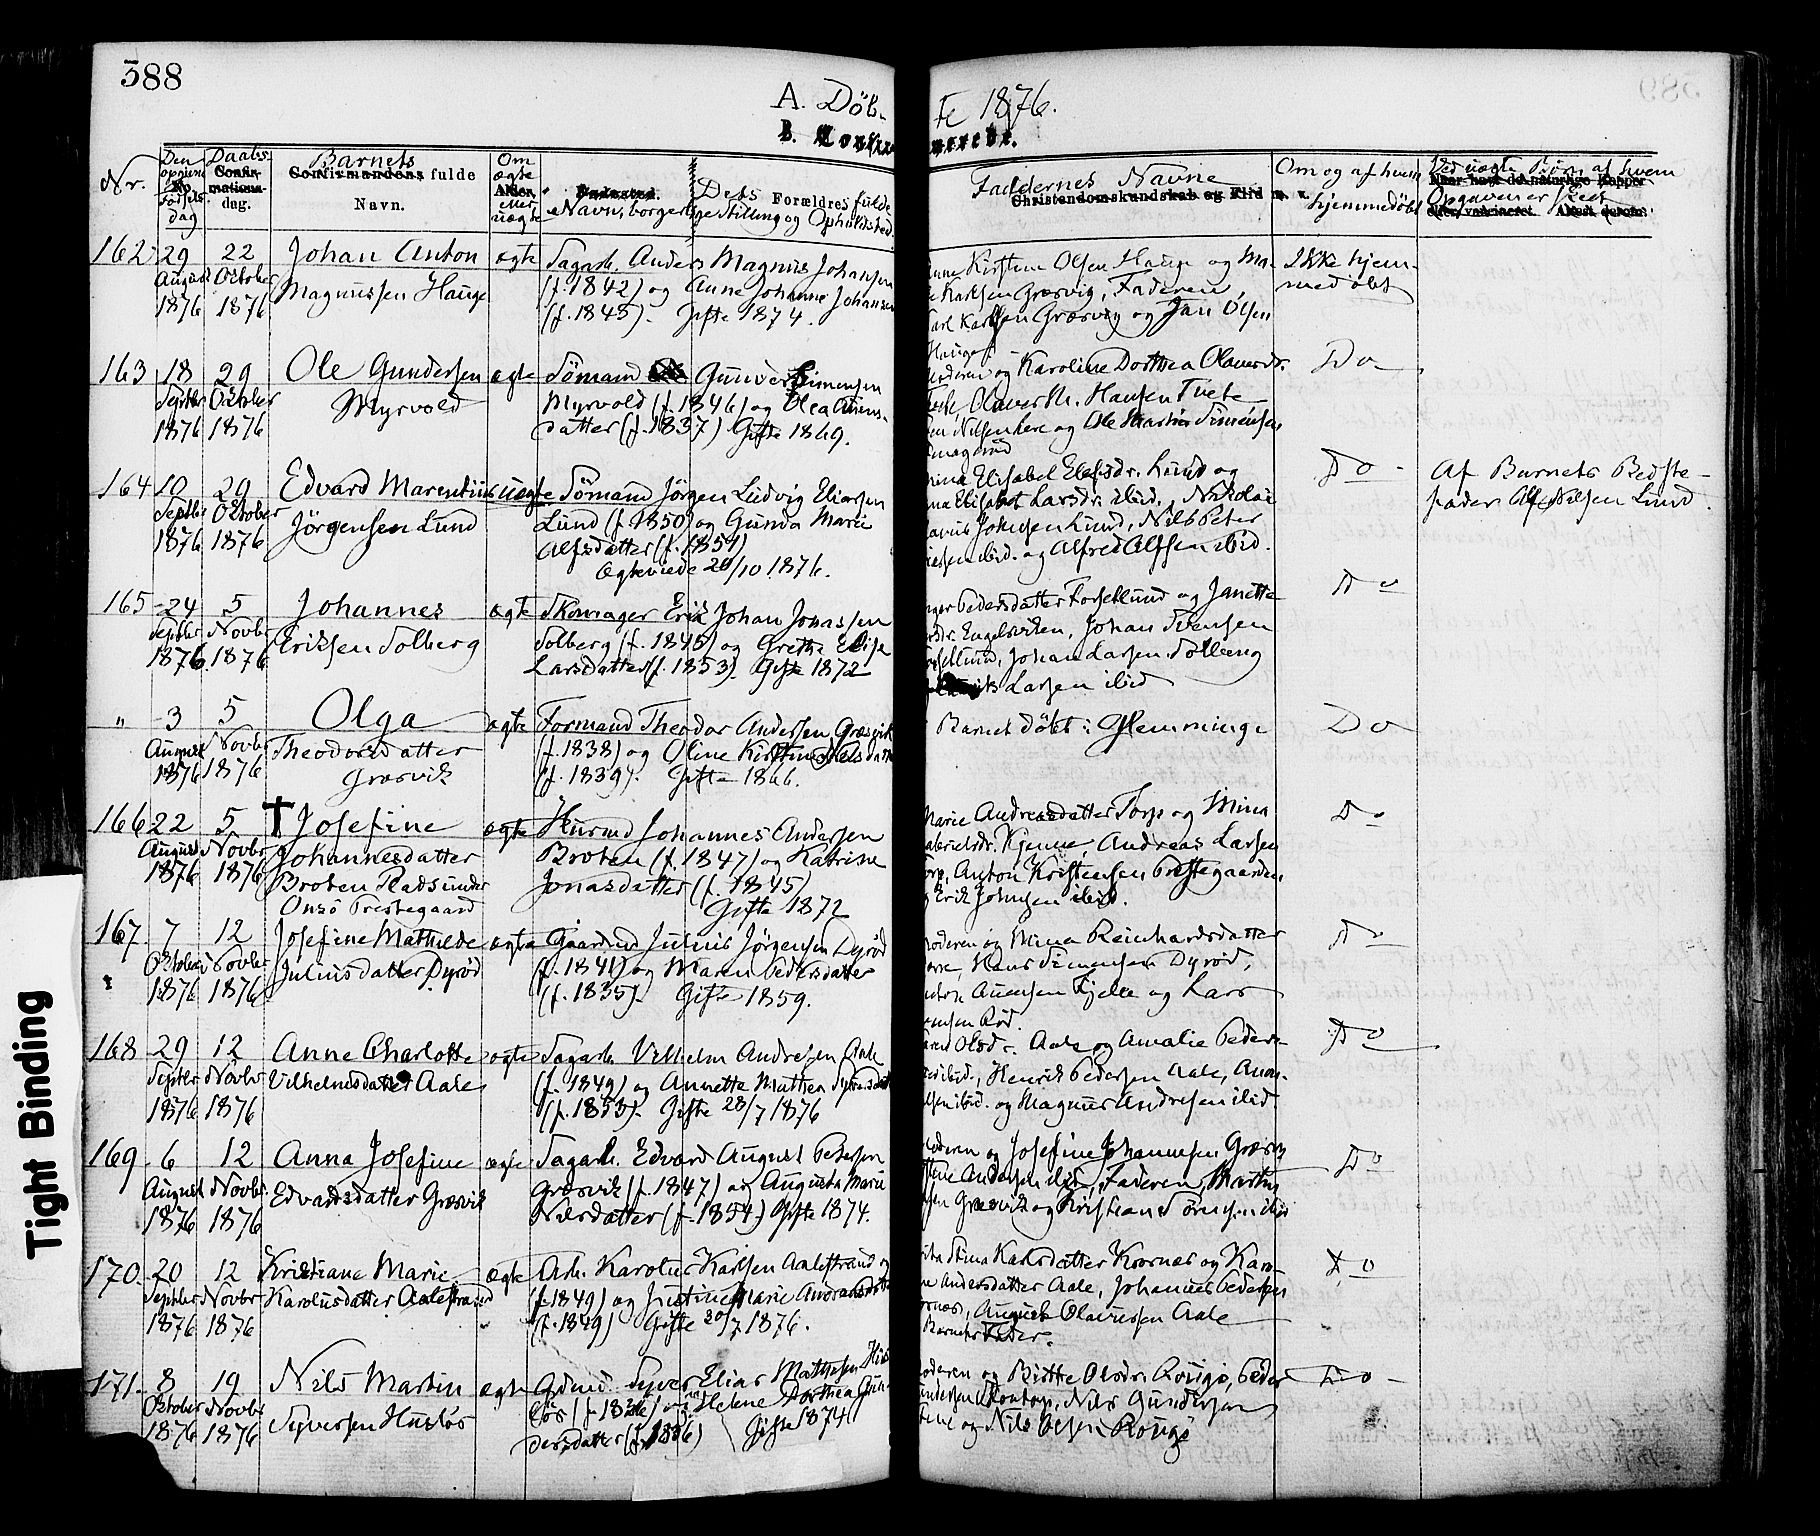 388
A. Döb-
te 1876.
Nr.
Den opgivne Fødselsdag
Daabs- dag.
Barnets fulde Navn.
Om ægte eller uægte
Dets Forældres fulde Navn, borgerlige Stilling og Opholdssted.
Faddernes Navne
Om og af hvem hjemmedöbt
Ved uægte Börn af hvem Opgaven er skeet
162. 29 August 1876
22 October 1876
Johan Anton
Magnussen Hauge
ægte
Dagarb. Anders Magnus Johansen
(f. 1842) og Anne Johanne Johansen
(f. 1845). Gifte 1874.
Kirstine Olsen Hauge og
Karlsen Græsvig, Faderen,
Karlsen Græsvig og Jan Olsen
Hauge.
Ikke hjem-
medöbt
163 18 Septbr 1876
29 Oktober 1876
Ole Gundersen
Myrvold
ægte
Sömand Gunder Simensen
Myrvold (f. 1846) og Olea
datter (f. 1837) Gifte 1869.
og Karoline Dorthea Olavesdr.
Olaves M. Hansen Tvete
Nilsen Lere og Ole Martin Simensen
Do
164 10 Septbr 1876
29 Oktober 1876
Edvard Marentius
Jörgensen Lund
uægte
Sömand Jörgen Ludvig Eliassen
Lund (f. 1850) og Gunda Marie
Alfsdatter (f. 1854)
Ægteviede 20/10 1876.
Elisabet Lund og
Elisabet Larsdr. ibid., Nikolai
Johnsen Lund, Nils Peter
ibid. og Alfred Alfsen ibid.
Do
Af Barnets Bedste-
fader Alf Nilsen Lund.
165 24 Septbr 1876
5 Novbr 1876
Johannes
Eriksen Solberg
ægte
Skomager Erik Johan Jonassen
Solberg (f. 1845) og Grethe Elise
Larsdatter (f. 1853). Gifte 1872
Pedersdatter Forsetlund og Janette
Engelsviken, Johan Svensen
Johan Larsen Solberg
Larsen ibid
Do
" 3 August 1876
5 Novbr 1876
Olga
Theodorsdatter
Græsvik
ægte
Formand Theodor Andersen Græsvik
(f. 1838) og Oline Kirstine
(f. 1839). Gifte 1866.
Barnet döbt i Glemminge
Do
166 22 August 1876
5 Novbr 1876
† Josefine
Johannesdatter
Broten Pladsunder
Onsö Prestegaard
ægte
Husmd Johannes Andersen
Broten (f. 1847) og Katrine
Jonasdatter (f. 1845)
Gifte 1872
Marie Andreasdatter Torp og Mina
Kjenne, Andreas Larsen
Torp, Anton Kristensen Prestegaarden,
Erik Johnsen ibid.
Do
167. 7 Oktober 1876
12 Novbr 1876
Josefine Mathilde
Juliusdatter Dyröd
ægte
Gaardmd Julius Jörgensen Dyröd
(f. 1841) og Maren Pedersdatter
(f. 1835). Gifte 1859.
Moderen og Mina Reinhardsdatter
Hans Simensen Dyröd,
Fjelle og Lars
Röd.
Do
168 29 Septbr 1876
12 Novbr 1876
Anne Charlotte
Vilhelmsdatter Aale
ægte
Dagarb. Vilhelm Andresen Aale
(f. 1849) og Annette Mathea
(f. 1853). Gifte 28/7 1876
Aale og Amalie Peders-
ibid., Henrik Pedersen Aale,
ibid. og Magnus Andresen ibid.
Do
169 6 August 1876
12 Novbr 1876
Anna Josefine
Edvardsdatter Græsvik
ægte
Dagarb. Edvard August Petersen
Græsvik (f. 1847) og Augusta Marie
Nilsdatter (f. 1854) Gifte 1874.
Moderen og Josefine Johannesen Græsvig
Andersen ibid, Faderen,
Græsvik og Kristian Sörensen ibid
Do
170. 20 Septbr 1876
12 Novbr 1876
Kristiane Marie
Karolusdatter Aalestrand
ægte
Arb. Karolus Karlsen Aalestrand og
(f. 1849) og Justine Marie Andreasdatter
(f. 1849) Gifte 20/7 1876.
Stina Karlsdatter Kornæs og
Andersdatter Aale, Johannes Pedersen
August Olaussen Aale
Barnets Fader.
Do
171. 8 Oktober 1876
19 Novbr 1876
Nils Martin
Syversen Huslös
ægte
Gdmd. Syver Elias Mathisen Hus-
lös og Helene Dorthea Gun-
dersdatter Gifte 1874
Moderen og Birthe Olsdr. Rougsö, Peder
Nils Gundersen
og Nils Olsen Rougsö
Do
Tight Binding